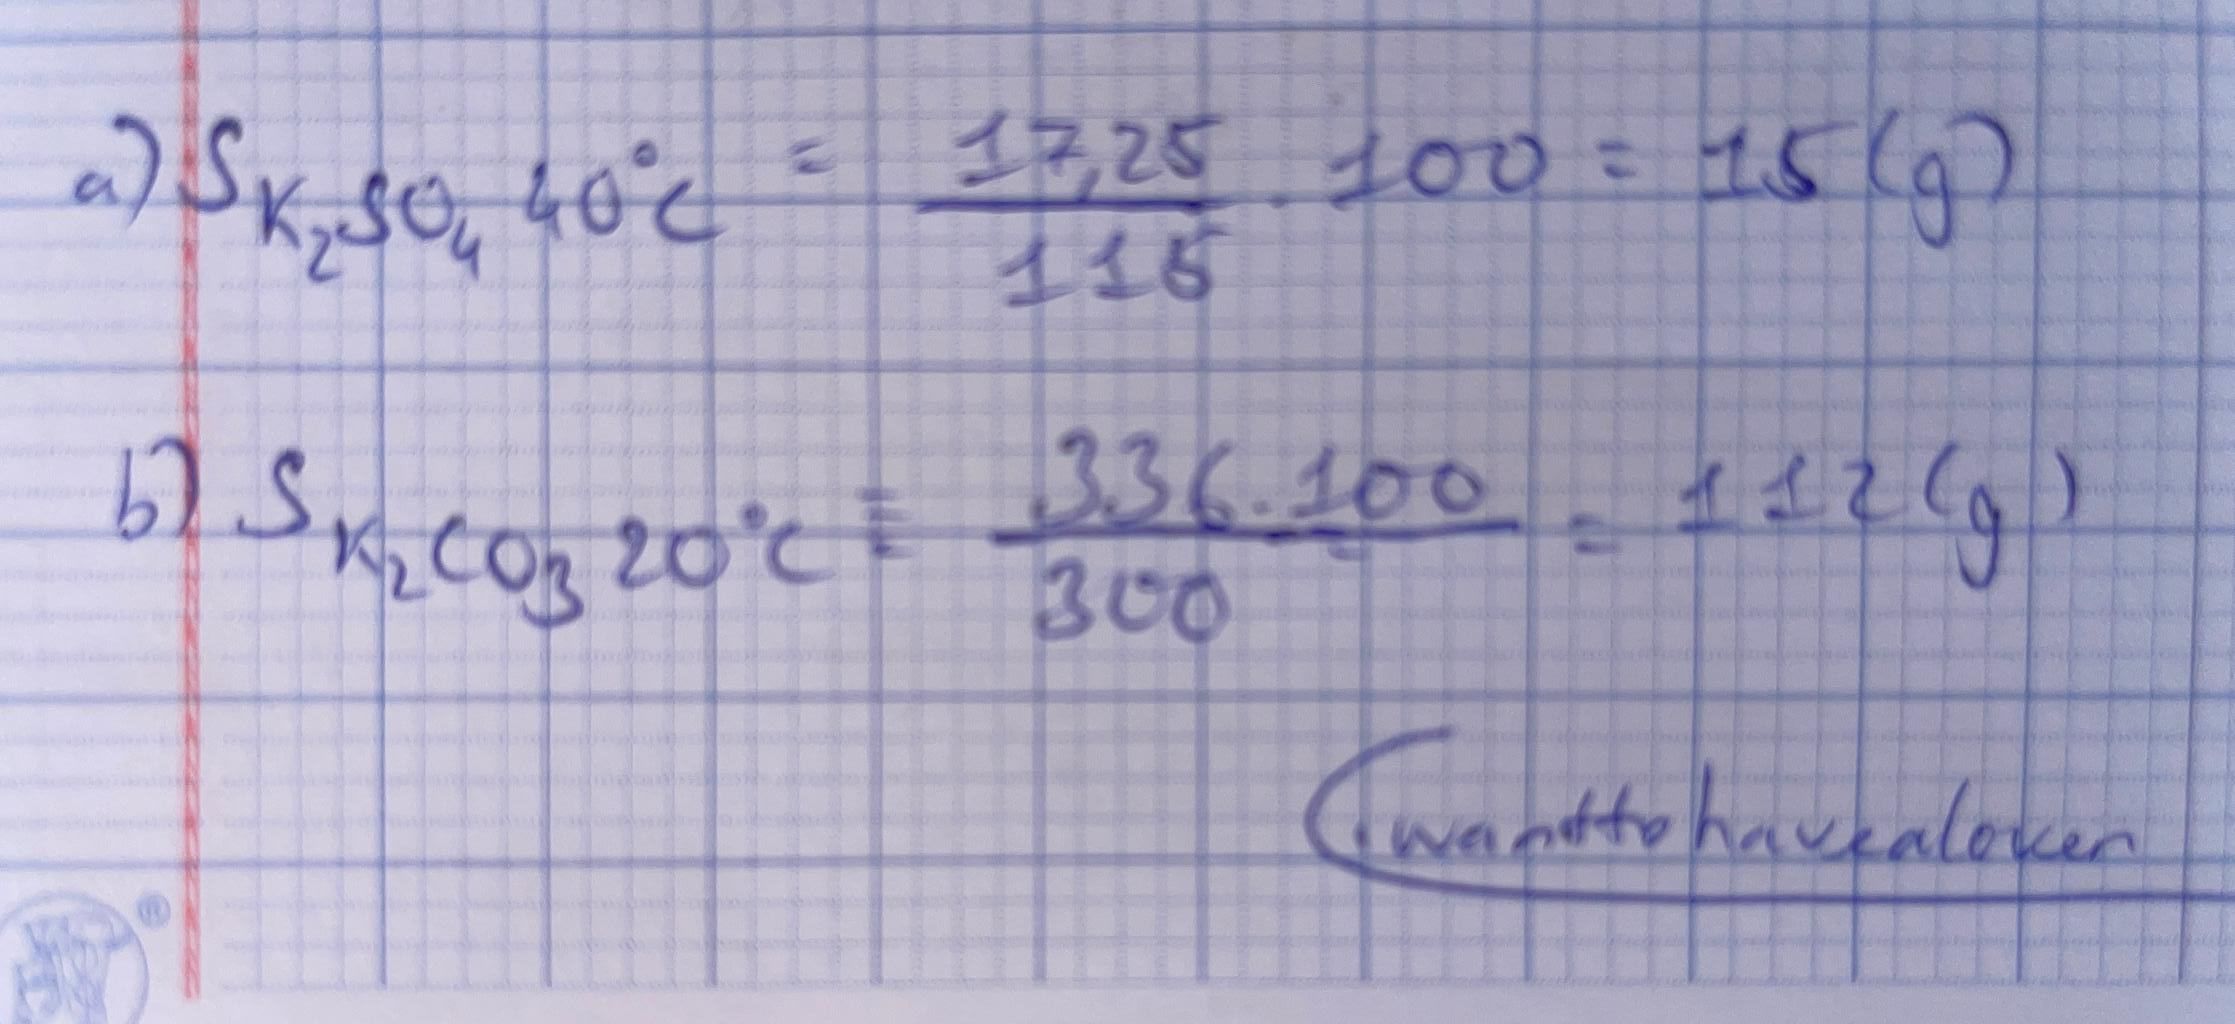 a) S K₂SO₄ 40°C = 17,25 / 115 . 100 = 15 (g)
b) S K₂CO₃ 20°C = 336.100 / 300 = 112 (g)
iwanttohavealover
®